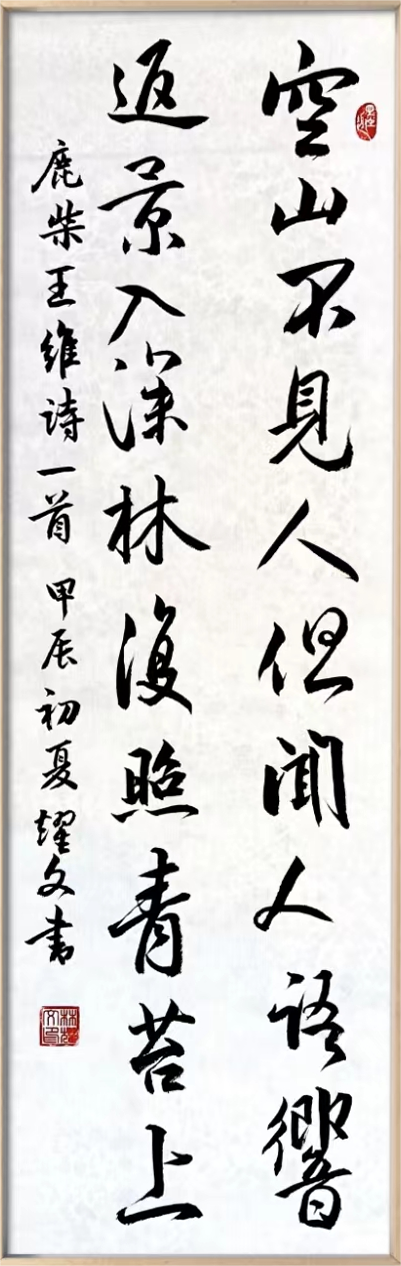 空山不見人但聞人語響
返景入深林復照青苔上
鹿柴王維詩一首 甲辰初夏 耀文書